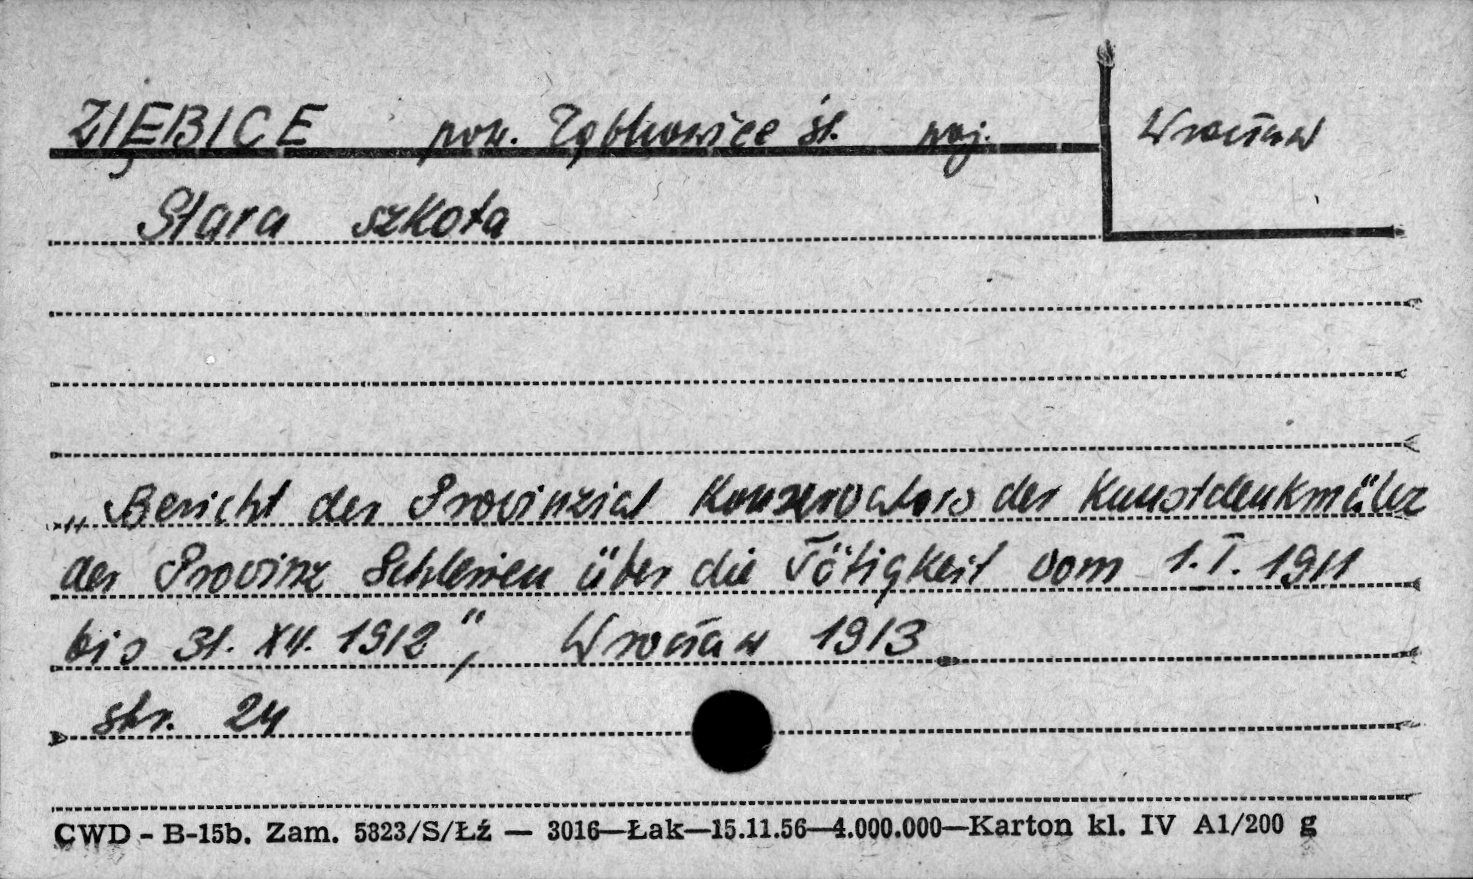 ZIĘBICE pow. Ząbkowice śl. woj. Wrocław
Stara szkoła
„Bericht des Provinzial Konservators der Kunstdenkmäler
der Provinz Schlesien über die Tätigkeit vom 1.I.1911
bis 31.XII.1912", Wrocław 1913
str. 24
CWD - B-15b. Zam. 5823/S/Łź — 3016—Łak—15.11.56—4.000.000—Karton kl. IV A1/200 g